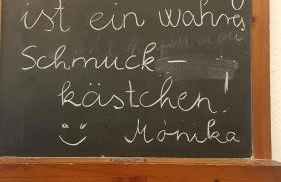 ist ein wahres
Schmuck-
kästchen!
Monika